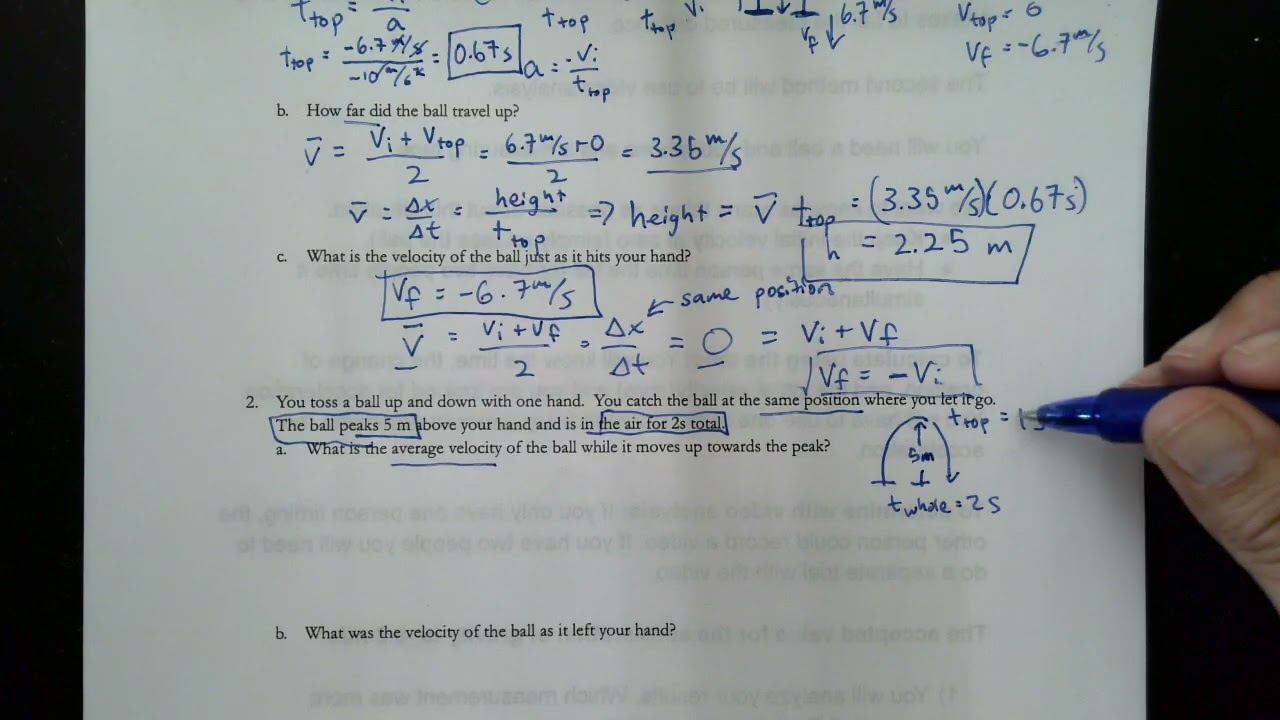 t_top = a
t_top = -6.7 m/s / -10 m/s² = 0.67s
t_top
a = -Vi / t_top
t_top
Vi
6.7 m/s
Vf
Vtop = 0
Vf = -6.7 m/s
b. How far did the ball travel up?
V̄ = Vi + Vtop / 2 = 6.7 m/s + 0 / 2 = 3.35 m/s
V̄ = Δx / Δt = height / t_top => height = V̄ t_top = (3.35 m/s)(0.67s)
h = 2.25 m
c. What is the velocity of the ball just as it hits your hand?
Vf = -6.7 m/s
same position
V̄ = Vi + Vf / 2 = Δx / Δt = 0 = Vi + Vf
Vf = -Vi
2. You toss a ball up and down with one hand. You catch the ball at the same position where you let it go.
The ball peaks 5 m above your hand and is in the air for 2s total.
t_top = 1s
a. What is the average velocity of the ball while it moves up towards the peak?
5m
t whole = 2s
b. What was the velocity of the ball as it left your hand?